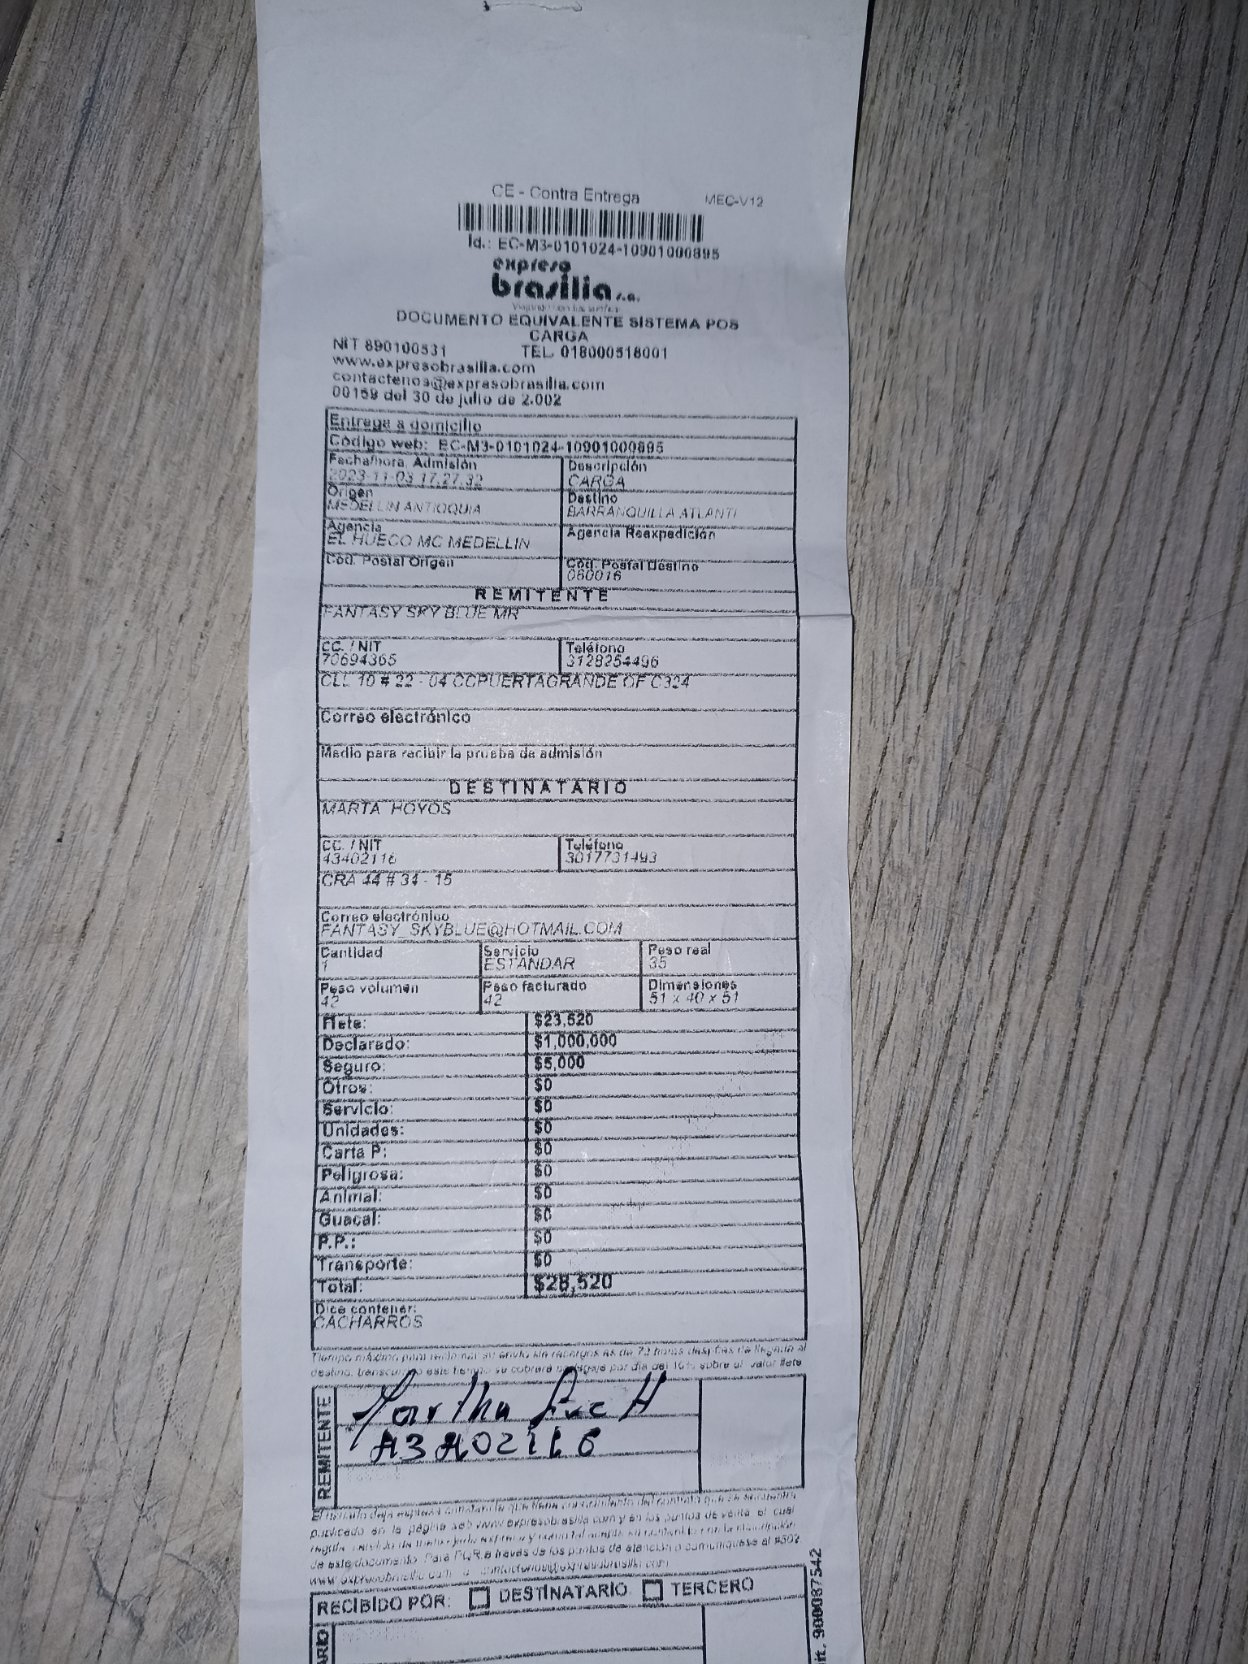 CE - Contra Entrega MEC-V12
Id.: EC-M3-0101024-10901000895
expreso
brasilia s.a.
DOCUMENTO EQUIVALENTE SISTEMA POS
CARGA
NIT 890100531 TEL. 018000518001
www.expresobrasilia.com
contactenos@expresobrasilia.com
00159 del 30 de julio de 2.002
Entrega a domicilio
Código web: EC-M3-0101024-10901000895
Fecha/hora Admisión Descripción
2023-11-03 17:27:32 CARGA
Origen Destino
MEDELLIN ANTIOQUIA BARRANQUILLA ATLANTI
Agencia Agencia Reexpedición
EL HUECO MC MEDELLIN
Cód. Postal Origen Cód. Postal Destino
080016
REMITENTE
FANTASY SKY BLUE MR
CC. / NIT Teléfono
70694365 3128254496
CLL 10 # 22 - 04 CCPUERTAGRANDE OF C324
Correo electrónico
Medio para recibir la prueba de admisión
DESTINATARIO
MARTA HOYOS
CC. / NIT Teléfono
43402116 3017731493
CRA 44 # 34 - 15
Correo electrónico
FANTASY_SKYBLUE@HOTMAIL.COM
Cantidad Servicio Peso real
1 ESTANDAR 35
Peso volumen Peso facturado Dimensiones
42 42 51 x 40 x 51
Flete: $23,520
Declarado: $1,000,000
Seguro: $5,000
Otros: $0
Servicio: $0
Unidades: $0
Carta P: $0
Peligrosa: $0
Animal: $0
Guacal: $0
P.P.: $0
Transporte: $0
Total: $28,520
Dice contener:
CACHARROS
Tiempo máximo para reclamar su envío sin recargos es de 72 horas después de llegada al
destino, transcurrido este tiempo se cobrará bodegaje por día del 10% sobre el valor flete
REMITENTE
Martha Luc H
43402116
publicado en la página web www.expresobrasilia.com y en los puntos de venta el cual
de este documento. Para PQR a través de los puntos de atención o comuníquese al #502
RECIBIDO POR: DESTINATARIO TERCERO
it. 900087542